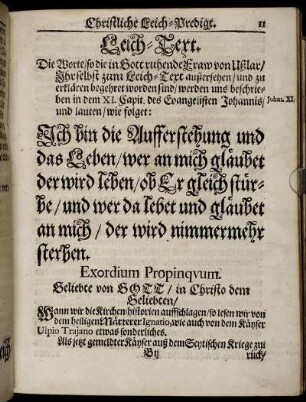 Christliche Leich-Predigt. 11
Leich-Text.
Die Worte/so die in Gott ruhende Fraw von Ußlar/
Ihr selbst zum Leich-Text außersehen/ und zu
erklären begehret worden sind/ werden uns beschrie-
ben in dem XI. Capit. des Evangelisten Johannis/
Johan. XI.
und lauten/ wie folget:
Ich bin die Aufferstehung und
das Leben/ wer an mich gläubet
der wird leben/ ob Er gleich stür-
be/ und wer da lebet und gläubet
an mich/ der wird nimmermehr
sterben.
Exordium Propinqvum.
Geliebte von GOTT/ in Christo dem
Geliebten/
Wann wir die Kirchen historien auffschlagen/ so lesen wir von
dem heiligen Märterer Ignatio, wie auch von dem Käyser
Ulpio Trajano etwas sonderliches.
Als jetzt gemeldter Käyser auß dem Scytischen Kriege zu
B ij
rück/